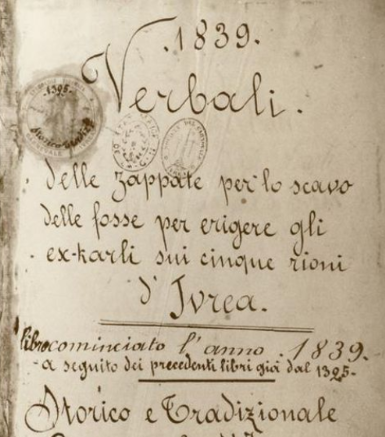 . 1839.
Verbali.
delle zappate per lo scavo
delle fosse per erigere gli
ex-karli sui cinque rioni
d' Ivrea.
libro cominciato l' anno . 1839.
- a seguito dei precedenti libri già dal 1325.-
Storico e Tradizionale